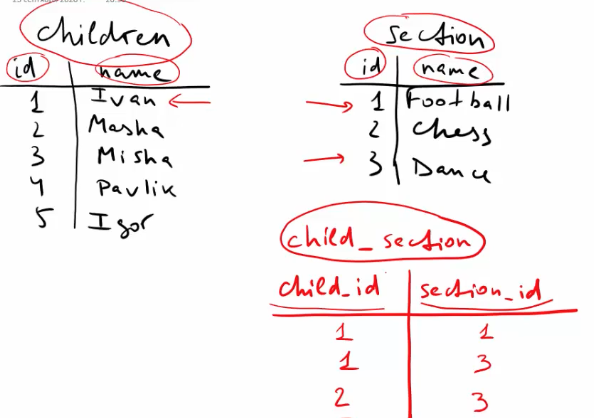 children
id name
1 Ivan
2 Masha
3 Misha
4 Pavlik
5 Igor
section
id name
1 Football
2 Chess
3 Dance
child_section
child_id section_id
1 1
1 3
2 3